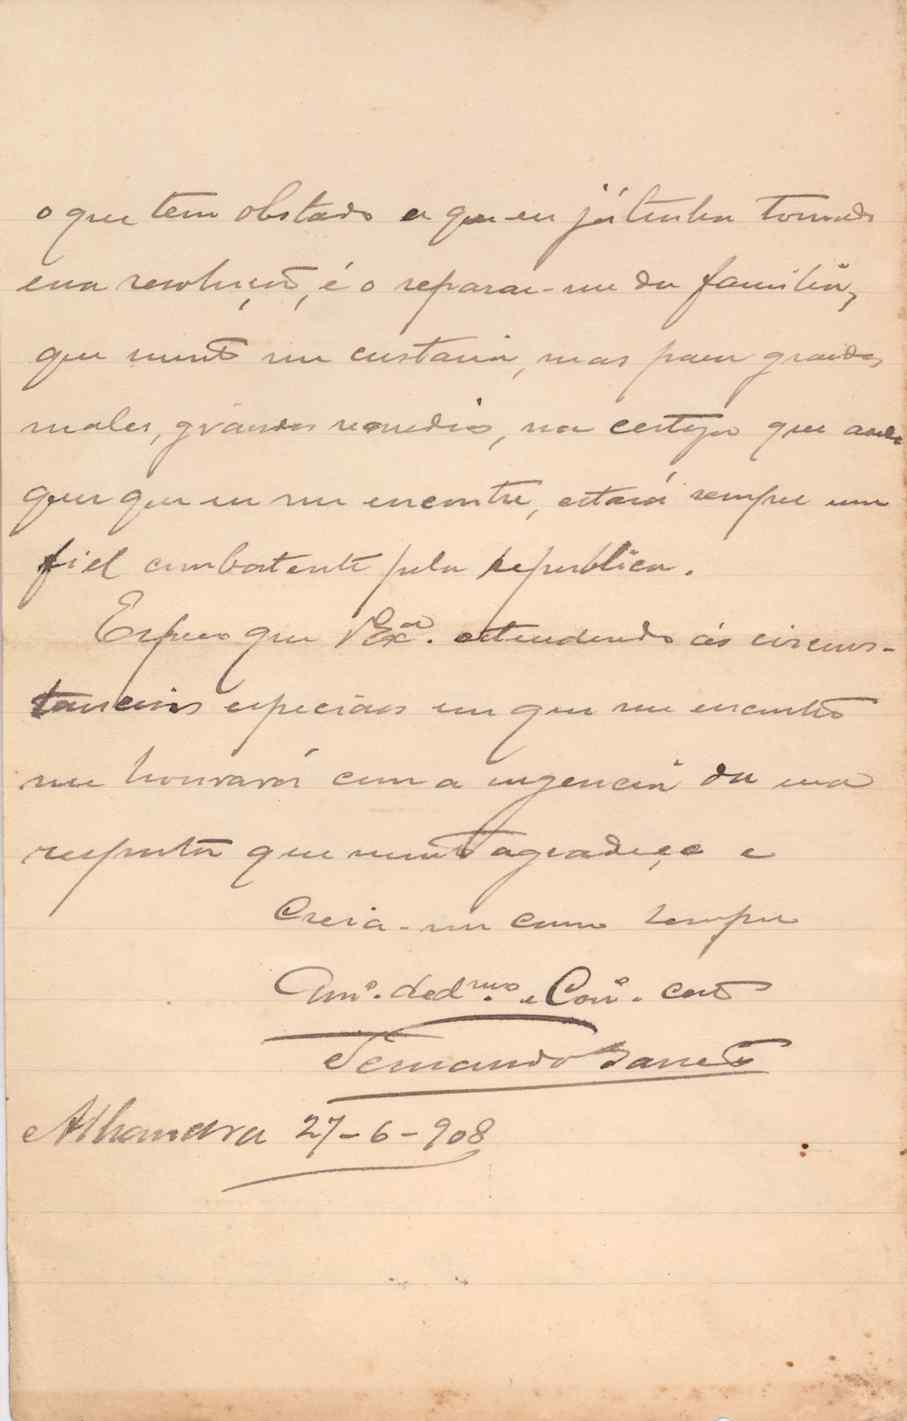 o que tem obstado a que eu já tenha tomado
essa resolução, é o separar-me da familia,
que muito me custaria, mas para grandes
males, grandes remedios, na certeza que onde
quer que eu me encontre, estará sempre um
fiel combatente pela republica.
Espero que V Exª. attendendo ás circums-
tancias especiaes em que me encontro
me honrará com a urgencia da sua
resposta que muito agradeço e
Creia-me como sempre
Amº. dedmo. e Corrº. certo
Fernando Barreto
Alhandra 27-6-908